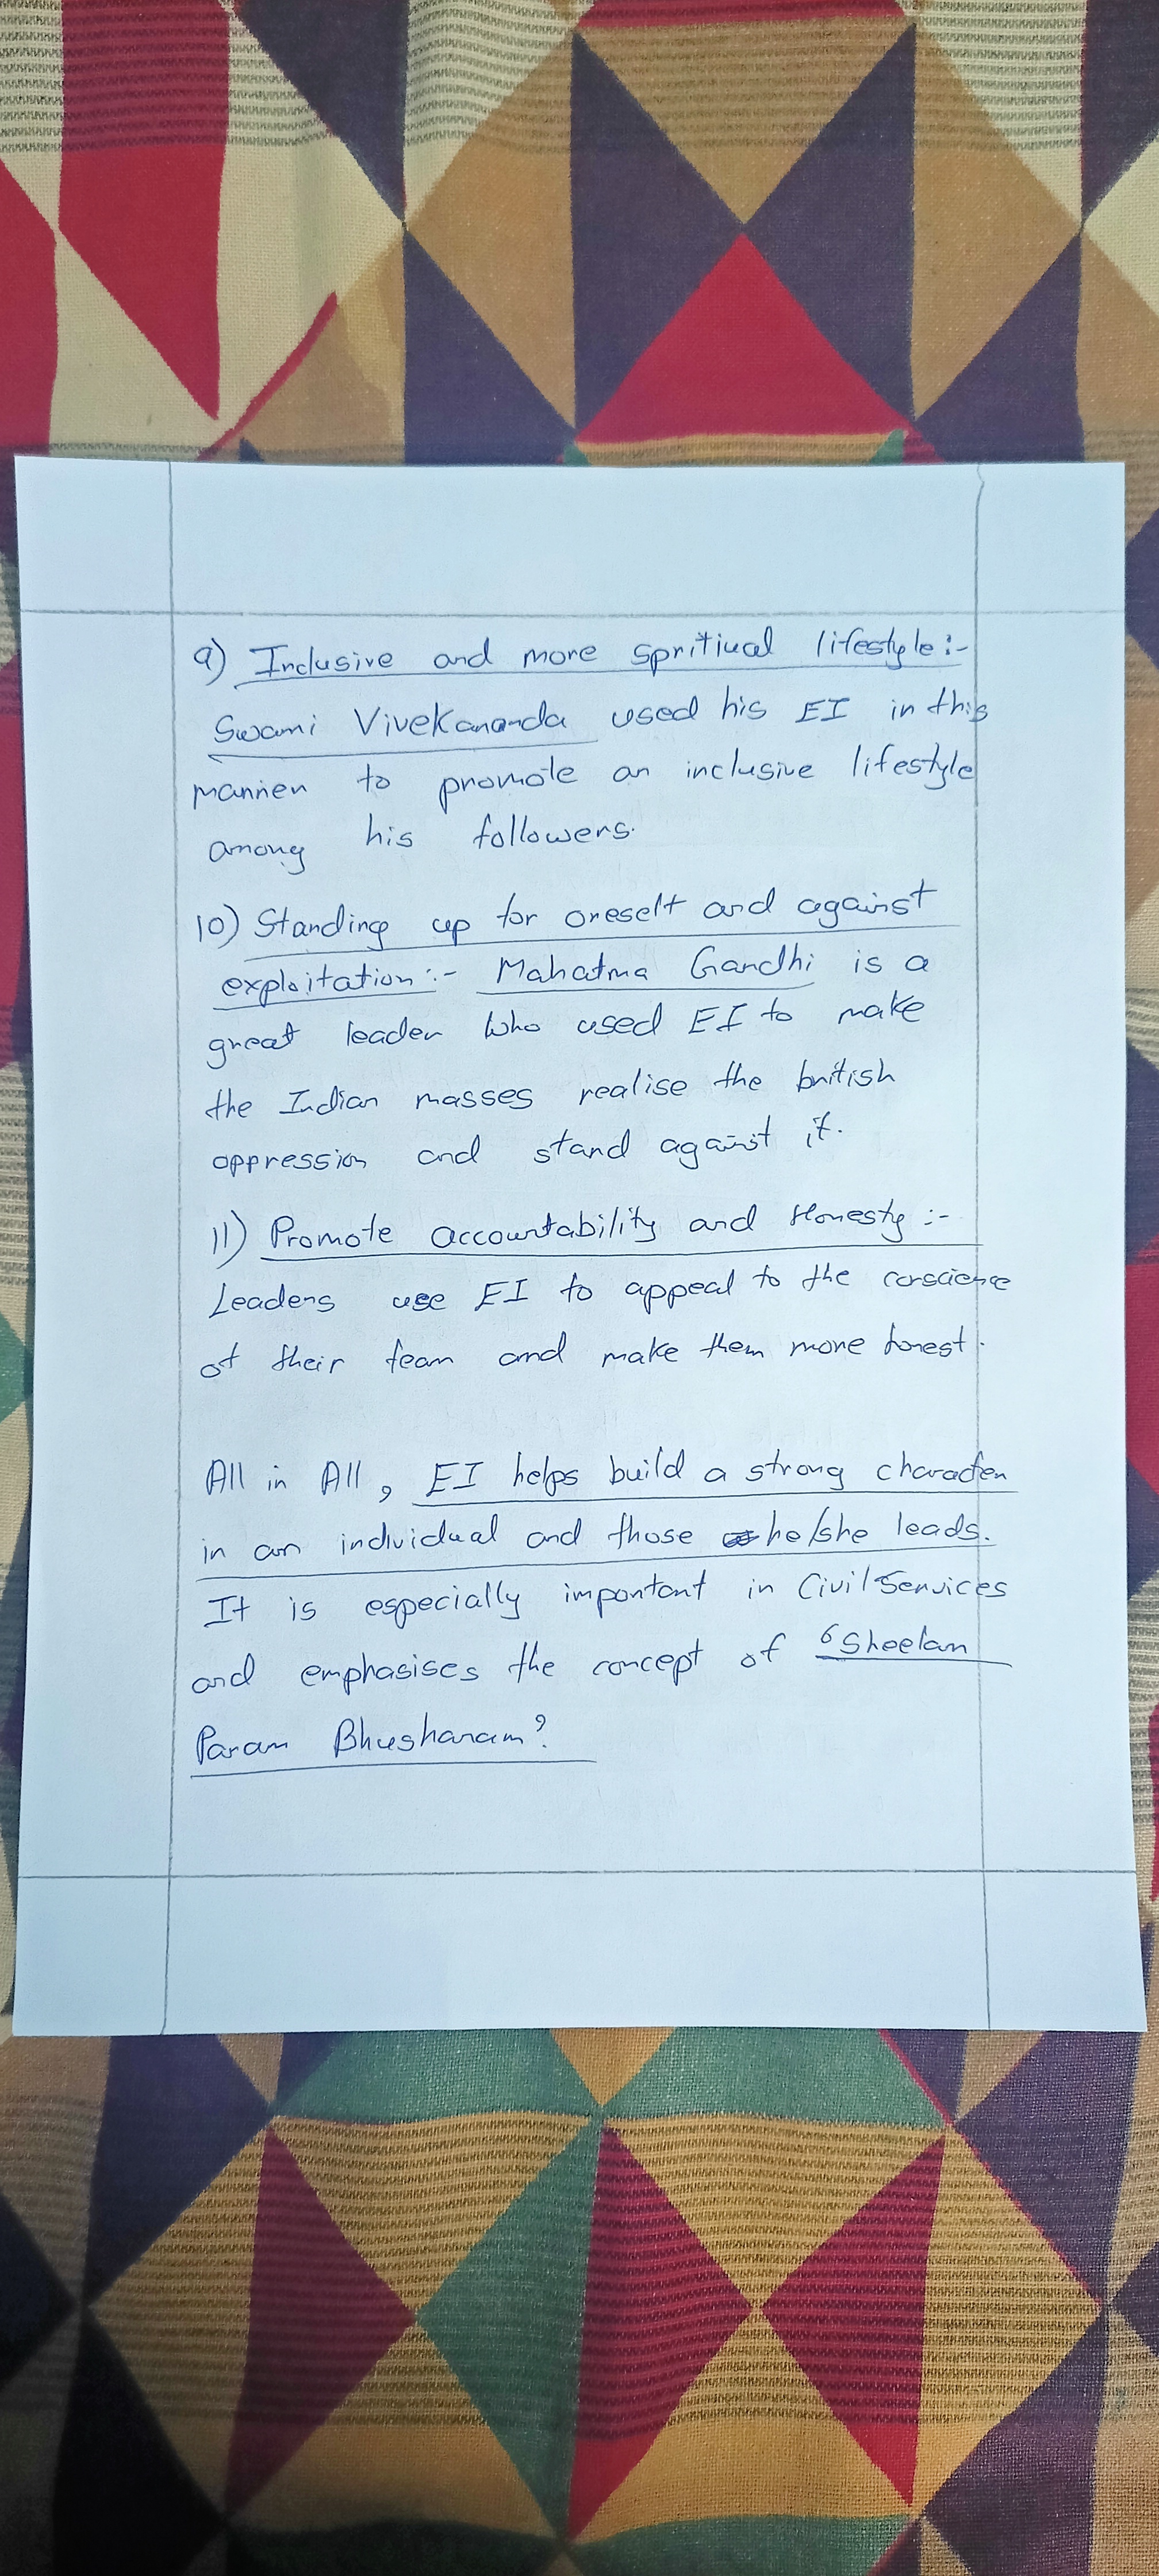 9) Inclusive and more spritiual lifestyle :-
Swami Vivekananda used his EI in this
manner to promote an inclusive lifestyle
among his followers.
10) Standing up for oneself and against
exploitation :- Mahatma Gandhi is a
great leader who used EI to make
the Indian masses realise the british
oppression and stand against it.
11) Promote accountability and Honesty :-
Leaders use EI to appeal to the conscience
of their team and make them more honest.
All in All, EI helps build a strong character
in an individual and those he/she leads.
It is especially important in Civil Services
and emphasises the concept of 'Sheelam
Param Bhushanam'